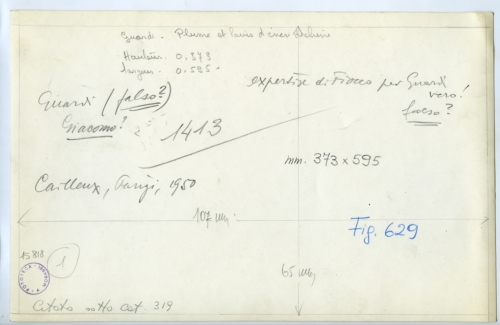 Guardi. Plume et lavis d'encre
Hauteur 0,373
Largeur 0.595
expertise di Fiocco per Guardi
vero!
falso?
Guardi (falso?)
Giacomo?
1413
mm. 373 x 595
Cailleux, Parigi, 1950
107 mm.
Fig. 629
15818
1
65 mm.
FOTOTECA
Citato sotto cat. 319